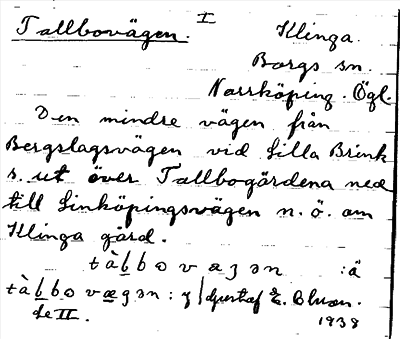 I
Tallbovägen.
Klinga.
Borgs sn.
Norrköping. Ögl.
Den mindre vägen från
Bergslagsvägen vid Lilla Brink
s. ut över Tallbogårdena ned
till Linköpingsvägen n. ö. om
Klinga gård.
tàbbo væȝən :ä
tàbbo væȝən : y | Gustaf E. Olsson.
de II. 1938